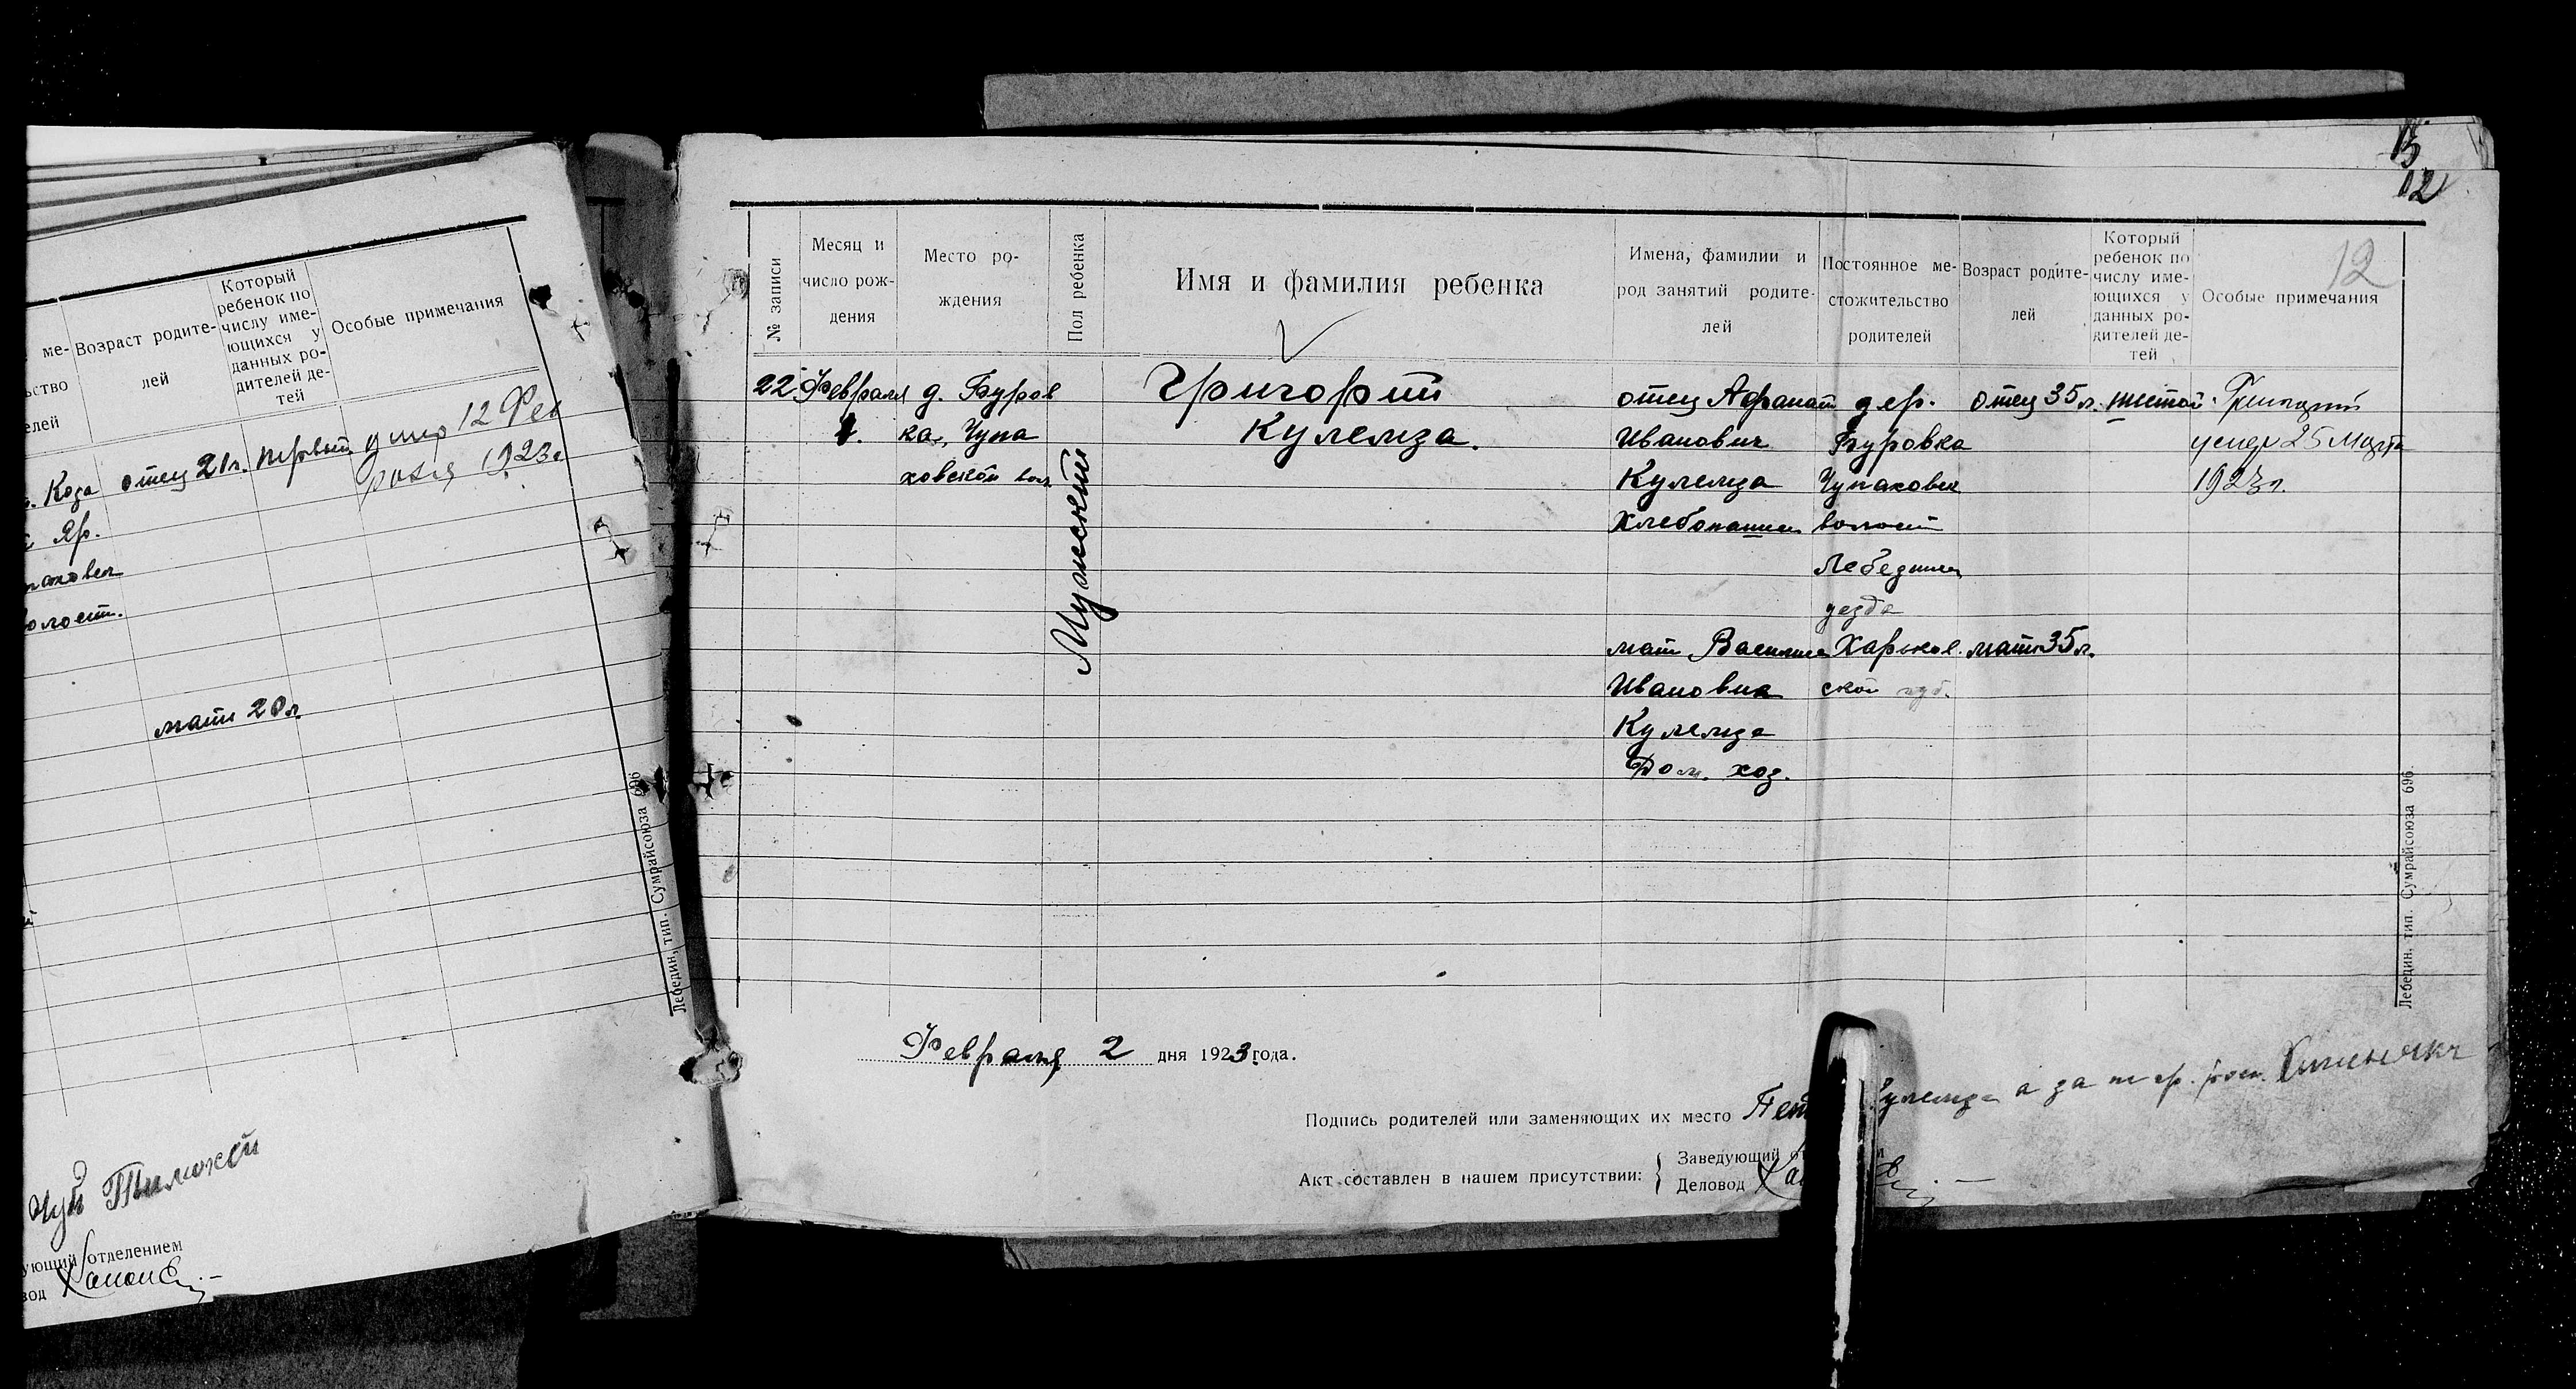 ме-
ство
елей
Возраст родите-
лей
Который
ребенок по
числу име-
ющихся у
данных ро-
дителей де-
тей
Особые примечания
Коза
Яр.
олост.
отец 21 л.
первый
умер 12 Фев
раля 1923 г
мати 20 л.
Лебедин, тип. Сумрайсоюза 696
ующий отделением
вод
15
12
12
№ записи
Месяц и
число рож-
дения
Место ро-
ждения
Пол ребенка
Имя и фамилия ребенка
Имена, фамилии и
род занятий родите-
лей
Постоянное ме-
стожительство
родителей
Возраст родите-
лей
Который
ребенок по
числу име-
ющихся у
данных ро-
дителей де-
тей
Особые примечания
22
Февраля
1.
д. Буров
ка, Чупа
ховской вол
Мужский
Григорий
Кулемза.
отец Афанасий
Иванович
Кулемза
Хлебопашец
мати Василиса
Ивановна
Кулемза
Дом. хоз.
дер.
Буровка
Чупаховск
волости
Лебединск
уезда
Харьков
ской губ.
отец 35 л.
мати 35 л.
шестой
Григорий
умер 25 марта
1923 г.
Лебедин, тип. Сумрайсоюза 696.
Февраля 2 дня 1923 года.
Подпись родителей или заменяющих их место
Кулемза а за
Акт составлен в нашем присутствии:
Заведующий
Деловод